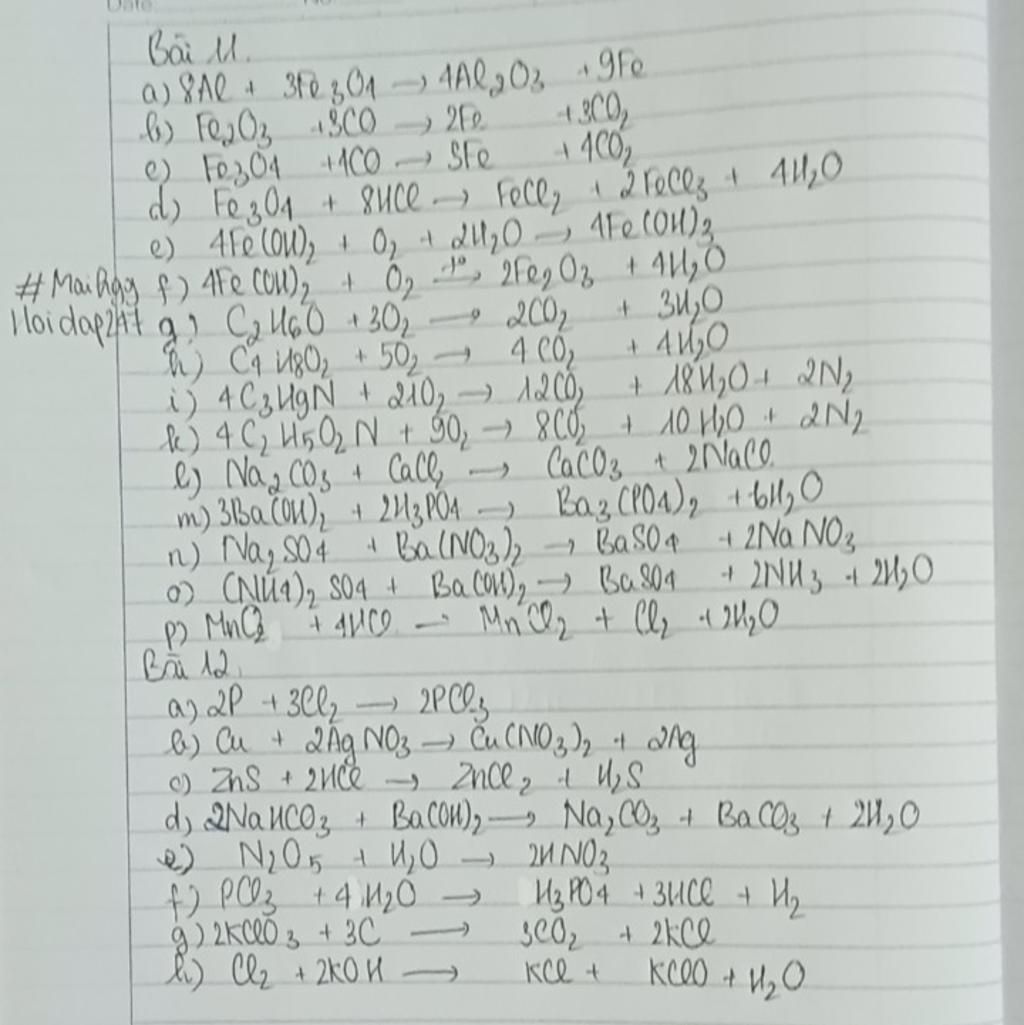 Date
No
Bài 11.
a) 8Al + 3Fe3O4 → 4Al2O3 + 9Fe
b) Fe2O3 + 3CO → 2Fe + 3CO2
c) Fe3O4 + 4CO → 3Fe + 4CO2
d) Fe3O4 + 8HCl → FeCl2 + 2FeCl3 + 4H2O
e) 4Fe(OH)2 + O2 + 2H2O → 4Fe(OH)3
f) 4Fe(OH)2 + O2 t°→ 2Fe2O3 + 4H2O
#MaiAgy
Hoidap247
g) C2H6O + 3O2 → 2CO2 + 3H2O
h) C4H8O2 + 5O2 → 4CO2 + 4H2O
i) 4C3H9N + 21O2 → 12CO2 + 18H2O + 2N2
k) 4C2H5O2N + 9O2 → 8CO2 + 10H2O + 2N2
l) Na2CO3 + CaCl2 → CaCO3 + 2NaCl
m) 3Ba(OH)2 + 2H3PO4 → Ba3(PO4)2 + 6H2O
n) Na2SO4 + Ba(NO3)2 → BaSO4 + 2NaNO3
o) (NH4)2SO4 + Ba(OH)2 → BaSO4 + 2NH3 + 2H2O
p) MnO2 + 4HCl → MnCl2 + Cl2 + 2H2O
Bài 12.
a) 2P + 3Cl2 → 2PCl3
b) Cu + 2AgNO3 → Cu(NO3)2 + 2Ag
c) ZnS + 2HCl → ZnCl2 + H2S
d) 2NaHCO3 + Ba(OH)2 → Na2CO3 + BaCO3 + 2H2O
e) N2O5 + H2O → 2HNO3
f) PCl3 + 4H2O → H3PO4 + 3HCl + H2
g) 2KClO3 + 3C → 3CO2 + 2KCl
h) Cl2 + 2KOH → KCl + KClO + H2O